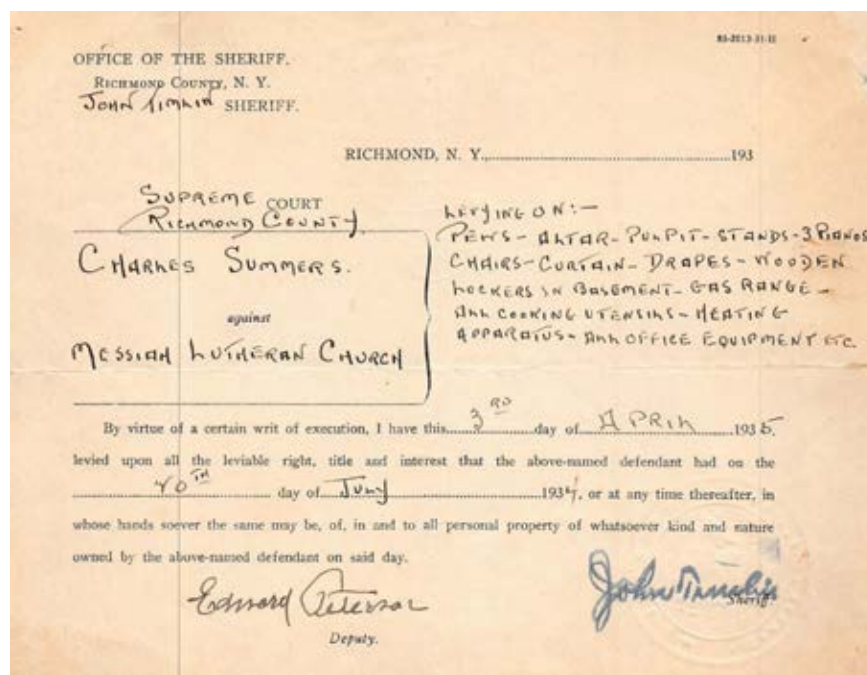 83-2013-31-H
OFFICE OF THE SHERIFF.
RICHMOND COUNTY, N. Y.
JOHN TIMLIN SHERIFF.
RICHMOND, N. Y., 193
SUPREME COURT
RICHMOND COUNTY.
CHARLES SUMMERS.
against
MESSIAH LUTHERAN CHURCH
LEVYING ON:—
PEWS - ALTAR - PULPIT - STANDS - 3 PIANOS
CHAIRS - CURTAIN - DRAPES - WOODEN
LOCKERS IN BASEMENT - GAS RANGE -
ALL COOKING UTENSILS - HEATING
APPARATUS - ALL OFFICE EQUIPMENT ETC.
By virtue of a certain writ of execution, I have this 3RD day of APRIL 1935,
levied upon all the leviable right, title and interest that the above-named defendant had on the
day of JULY 1934, or at any time thereafter, in
whose hands soever the same may be, of, in and to all personal property of whatsoever kind and nature
owned by the above-named defendant on said day.
Edward Peterson
Deputy.
John Timlin
Sheriff.